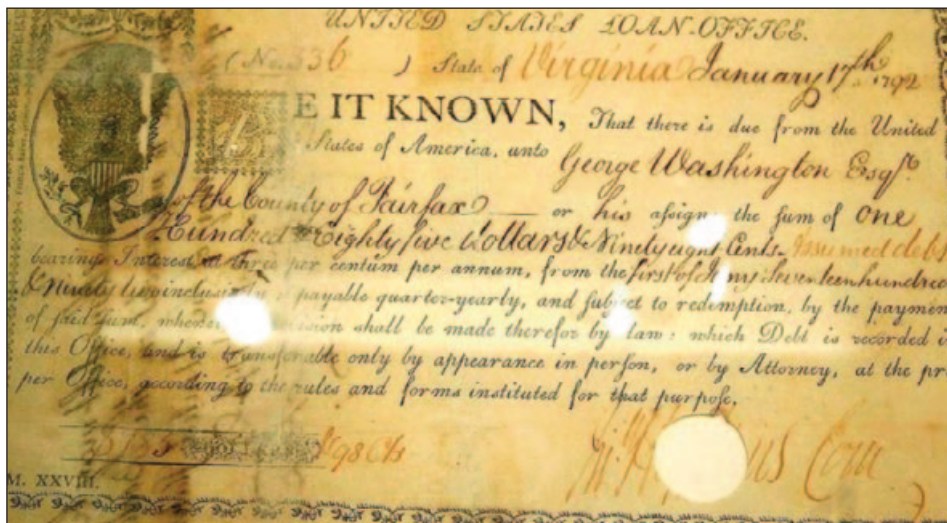 UNITED STATES LOAN-OFFICE.
(No. 336 ) State of Virginia January 17th 1792
E IT KNOWN, That there is due from the United
States of America, unto George Washington Esqr.
of the County of Fairfax or his assigns the sum of one
Hundred Eighty five Dollars & Ninety eight Cents. Assumed debt
bearing Interest at three per centum per annum, from the first of Seventeen hundred
& Ninety two inclusively, payable quarter-yearly, and subject to redemption, by the paymen
of said sum, shall be made therefor by law: which Debt is recorded
this Office, and is transferable only by appearance in person, or by Attorney, at the pr
per Office, according to the rules and forms instituted for that purpose.
98 Cts
M. XXVIII.